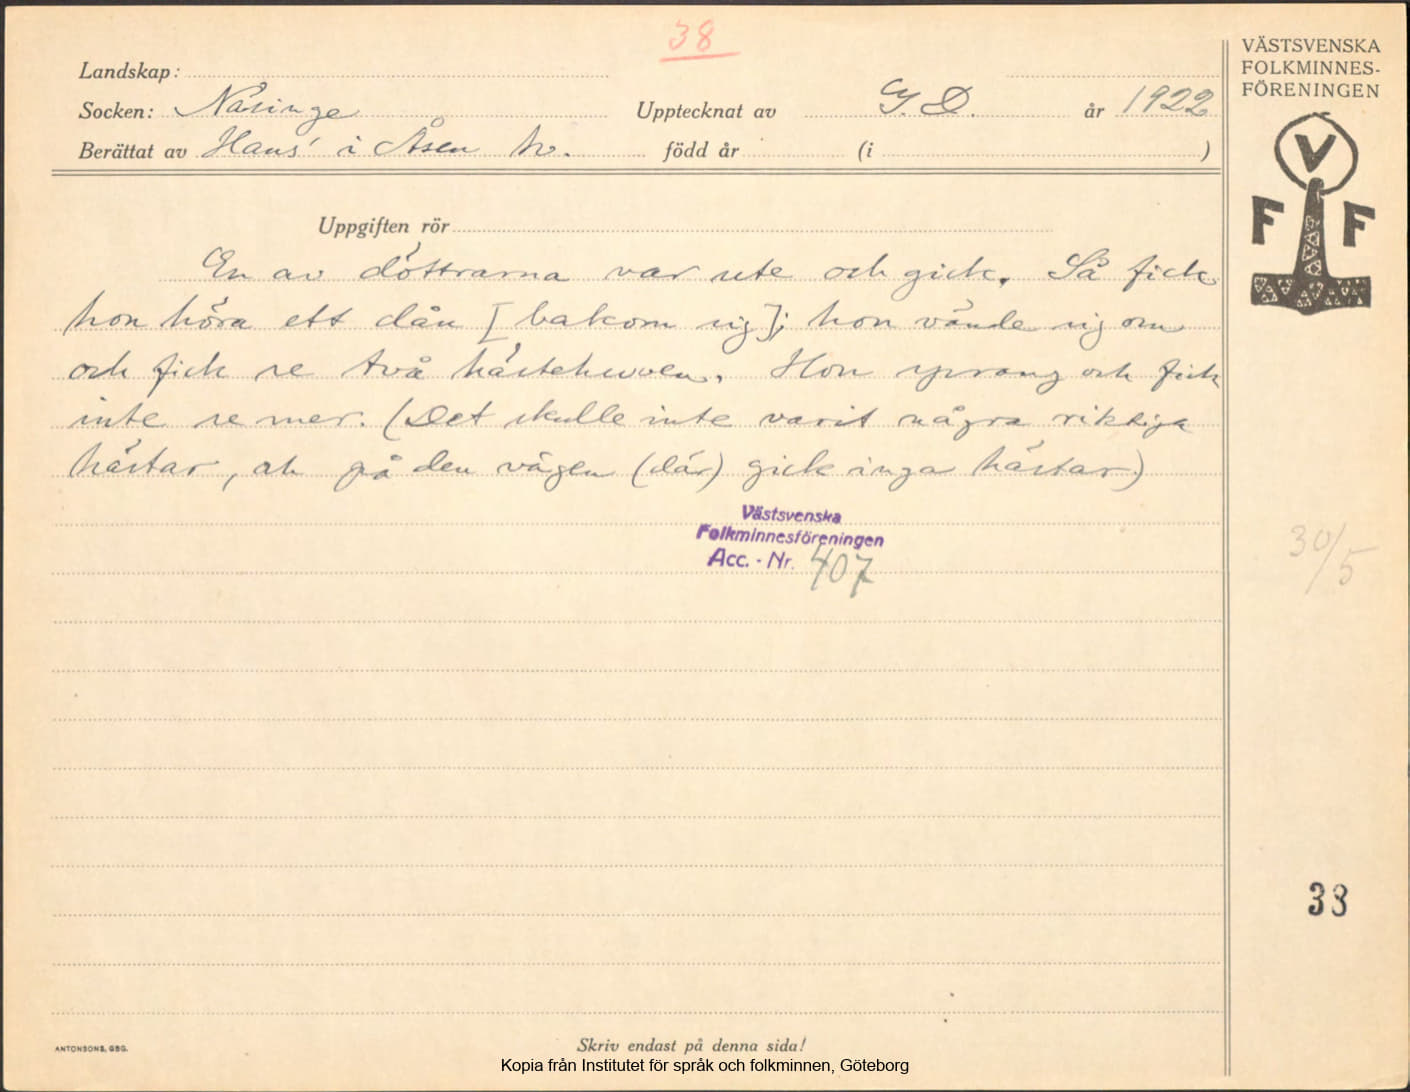 38
VÄSTSVENSKA
FOLKMINNES-
FÖRENINGEN
Landskap:
Socken: Näsinge Upptecknat av G. D. år 1922
Berättat av Hans' i Åsen hv. född år (i )
V
F F
Uppgiften rör
En av döttrarna var ute och gick. Så fick
hon höra ett dån [bakom sig]; hon vände sig om
och fick se två hästehuven. Hon sprang och fick
inte se mer. (Det skulle inte varit några riktiga
hästar, ah på den vägen (där) gick inga hästar)
Västsvenska
Folkminnesföreningen
Acc. - Nr. 407
30/5
38
ANTONSONS, GBG.
Skriv endast på denna sida!
Kopia från Institutet för språk och folkminnen, Göteborg